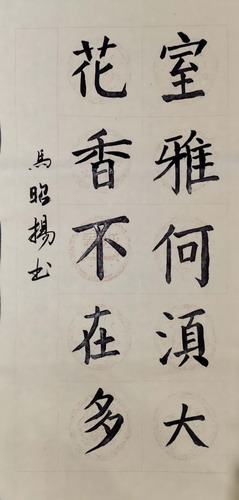 室雅何湏大
花香不在多
馬昭揚书